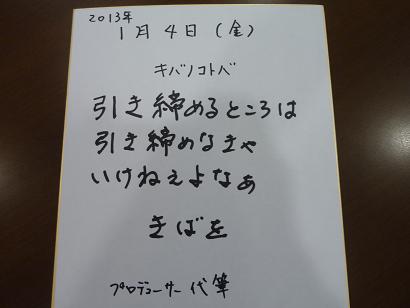 2013年
1月4日(金)
キバノコトバ
引き締めるところは
引き締めなきゃ
いけねぇよなぁ
きばを
プロデューサー代筆